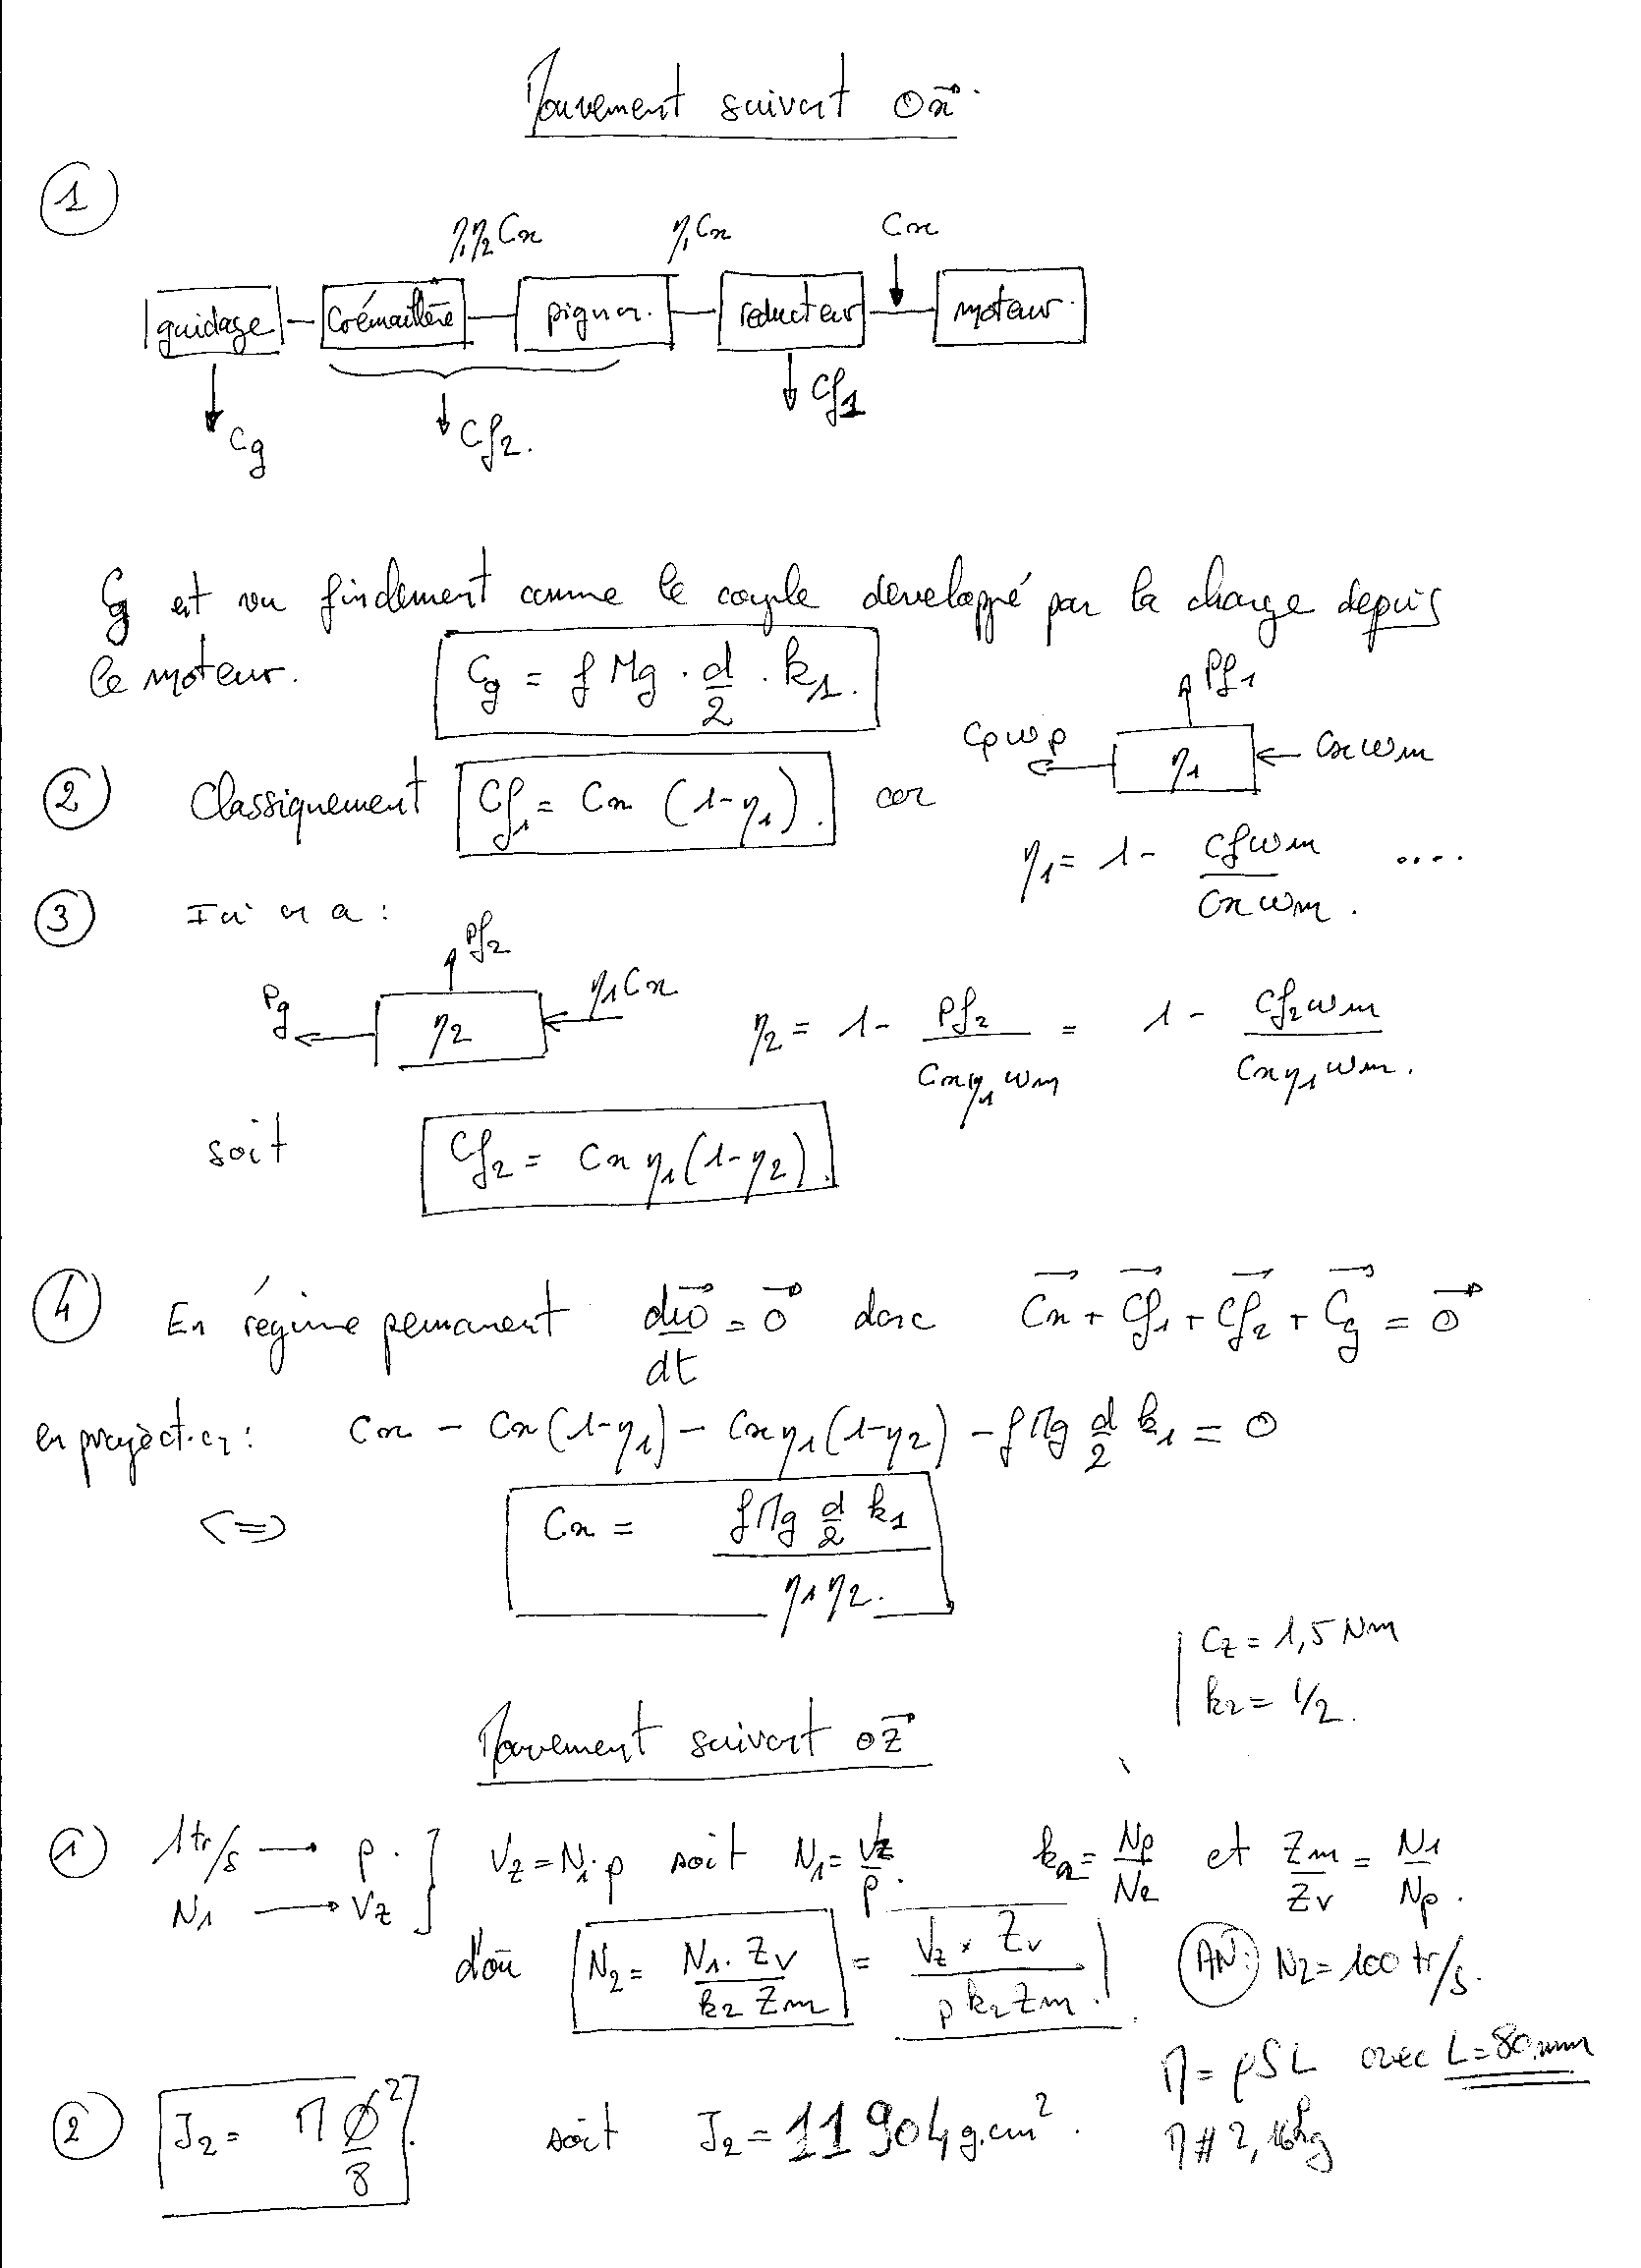 Mouvement suivant Ox
1
η1η2Cx η1Cx Cx
guidage Crémaillère pignon. réducteur moteur.
Cg Cf2. Cf1
Cg est vu finalement comme le couple développé par la charge depuis
le moteur. Cg = f Mg . d/2 . k1.
Pf1
Cpωp η1 Cxωm
2 Classiquement Cf1 = Cx (1-η1). car
η1 = 1 - Cfωm / Cxωm. ....
3 Ici on a :
Pf2
Pg η2 η1Cx η2 = 1 - Pf2 / Cxη1ωm = 1 - Cf2ωm / Cxη1ωm.
soit Cf2 = Cx η1(1-η2).
4 En régime permanent dω/dt = 0 donc Cx + Cf1 + Cf2 + Cg = 0
en projection : Cx - Cx(1-η1) - Cxη1(1-η2) - fMg d/2 k1 = 0
<=> Cx = fMg d/2 k1 / η1η2.
Cz = 1,5 Nm
k2 = 1/2.
Mouvement suivant Oz
1 1tr/s → p.
N1 → Vz
Vz = N1.p soit N1 = Vz/p. k2 = Np/N2 et Zm/Zv = N1/Np.
d'où N2 = N1.Zv / k2 Zm = Vz × Zv / p k2 Zm. AN: N2 = 100 tr/s.
M = ρSL avec L = 80mm
2 J2 = M ϕ²/8. soit J2 = 11 904 g.cm². M # 2,16kg